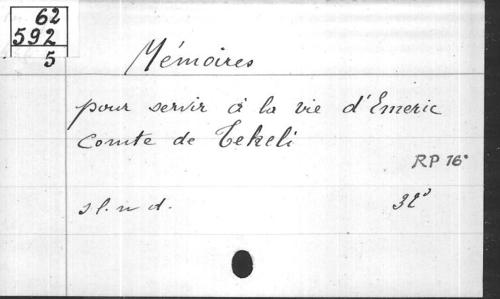 62
592
5
Mémoires
pour servir à la vie d'Emeric
Comte de Tekeli
RP 16°
s l. n d.
32°